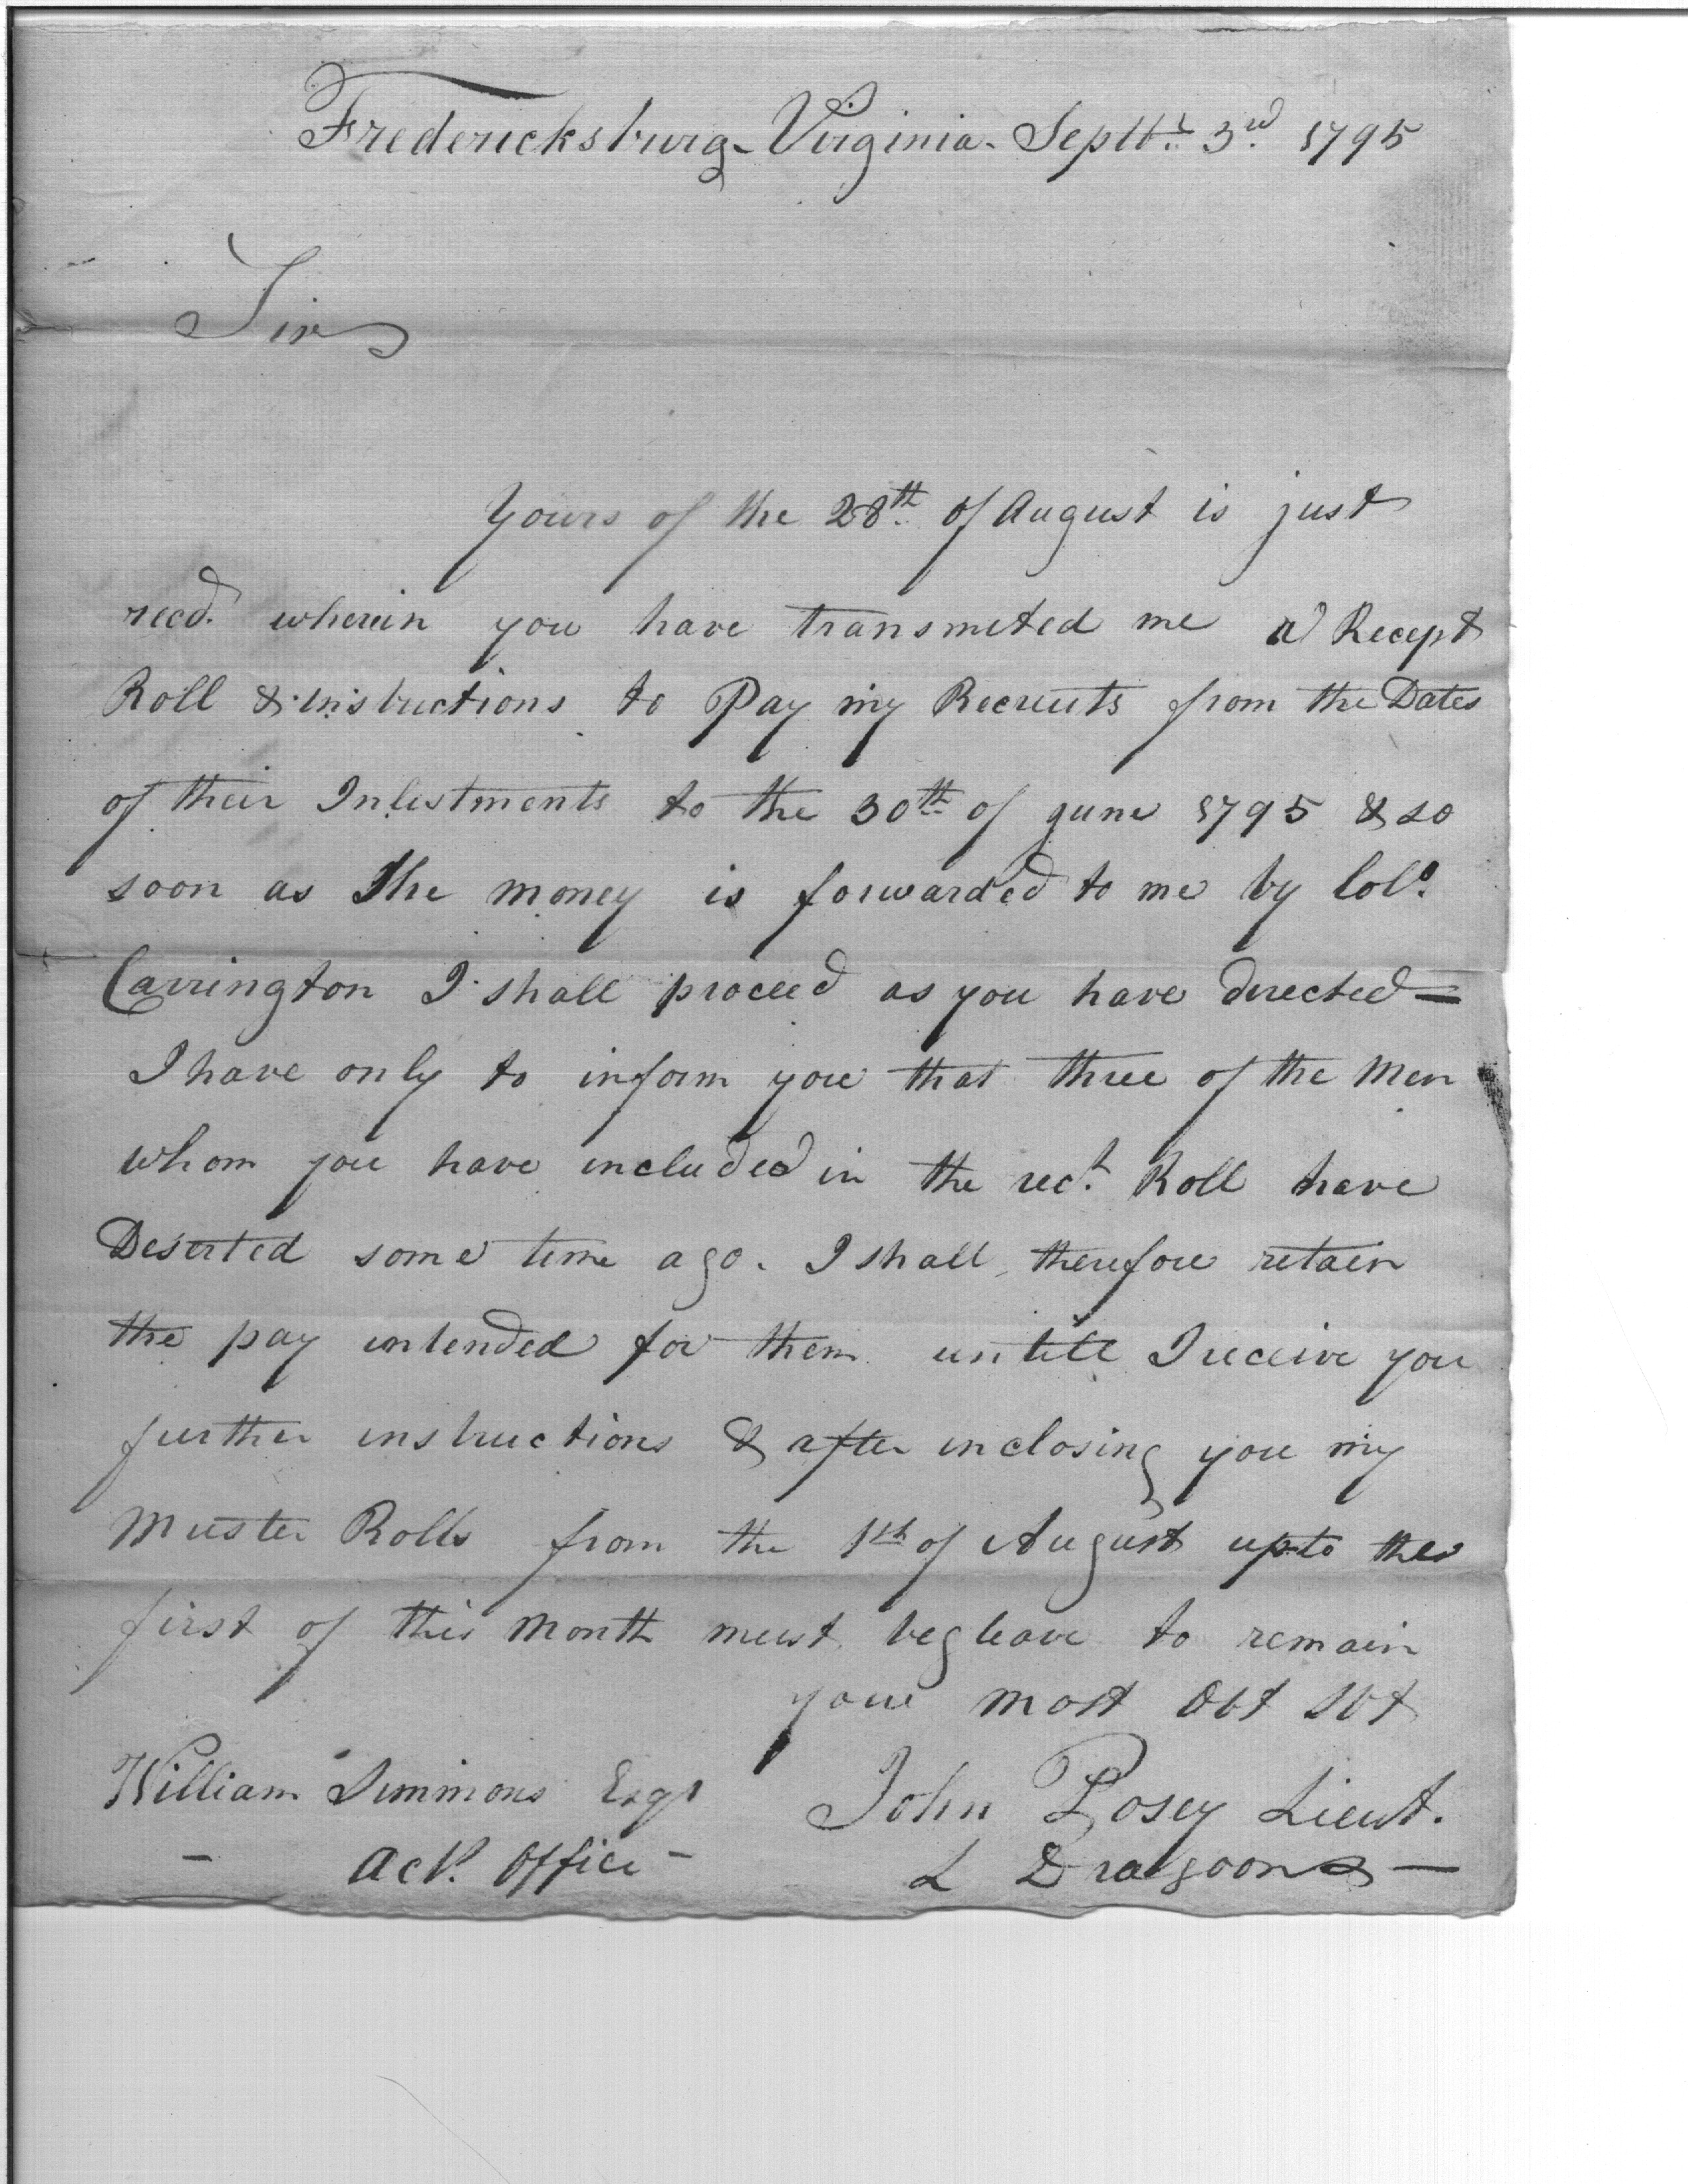 Fredericksburg - Virginia - Septbr. 3rd 1795
Sir
Yours of the 28th of August is just
recd. wherein you have transmeted me a Recept
Roll & instructions to Pay my Recruits from the Dates
of their Inlistments to the 30th of June 1795 & so
soon as the money is forwarded to me by Colo.
Carrington I shall proceed as you have directed =
I have only to inform you that three of the Men
whom you have included in the rect. Roll have
Deserted some time ago. I shall therefore retain
the pay intended for them untill I receive you
further instructions & after inclosing you my
Muster Rolls from the 1st of August upto the
first of this Month must beg leave to remain
your most Obt Sbt
William Simmons Esqr John Posey Lieut.
- Act. Office - L Dragoons -